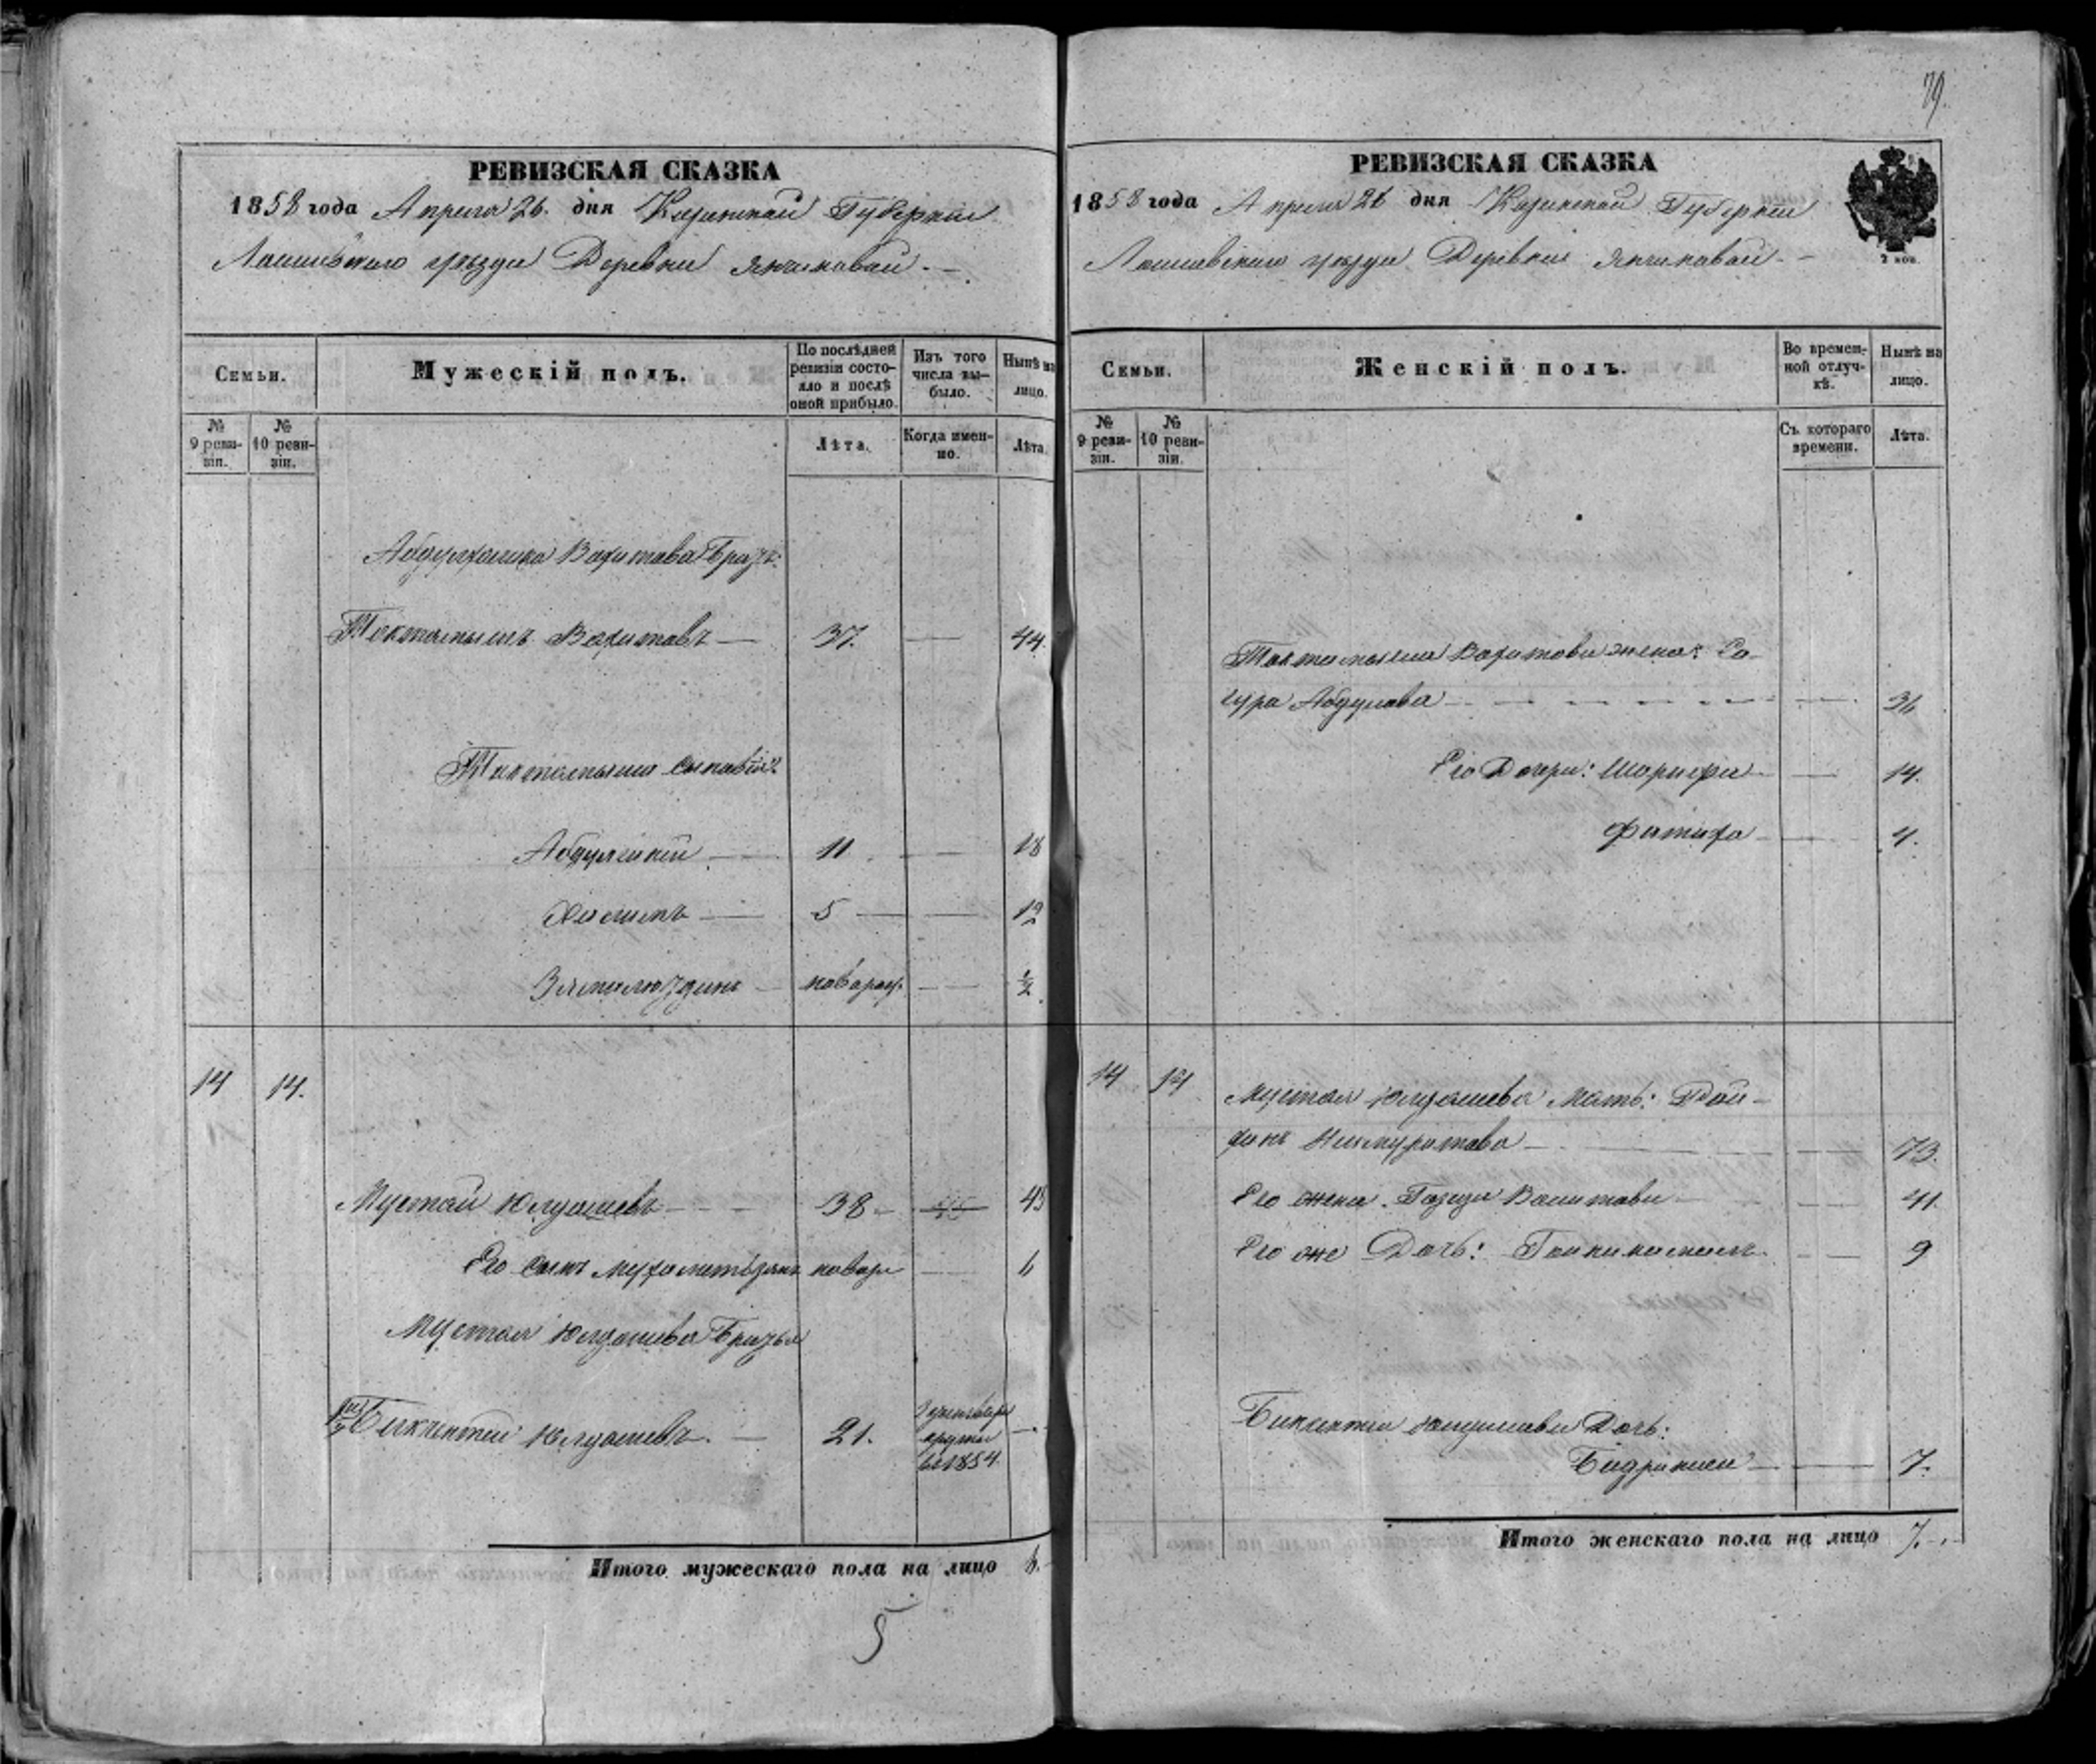 РЕВИЗСКАЯ СКАЗКА
1858 года Апреля 26. дня Казанской Губернии
Лаишевскаго уѣзда Деревни Янчиковой.
Семьи.
Мужескій полъ.
По послѣдней ревизіи состояло и послѣ оной прибыло.
Изъ того числа выбыло.
Нынѣ на лицо.
№ 9 ревизіи.
№ 10 ревизіи.
Лѣта.
Когда именно.
Лѣта.
Вахитова Братъ:
Токтамышъ Вахитовъ — 37. — 44.
Токтамыша сыновья:
11 — 18
Халимъ — 5 — — 12
новорож. — 1/2
14 14.
Мустай Юлдашевъ — 38 — 45
Его сынъ Мухаметзянъ новорж — 6
Мустая Юлдашева Братья
Юлдашевъ. — 21. 1854 —
Итого мужескаго пола на лицо 6.
5
79.
РЕВИЗСКАЯ СКАЗКА
1858 года Апреля 26 дня Казанской Губернии
Лаишевскаго уѣзда Деревни Янчиковой.
2 коп.
Семьи.
Женскій полъ.
Во временной отлучкѣ.
Нынѣ на лицо.
№ 9 ревизіи.
№ 10 ревизіи.
Съ котораго времени.
Лѣта.
Токтамыша Вахитова жена: Са-
гура Абдулова — 36
Его Дочери: Шарифа — 14.
Фатиха — 4.
14 14
Мустая Юлдашева Мать:
Ишмуратова — 73.
Его жена. Газиза Вахитова — 41.
Его же Дочь: — 9
Юлдашева Дочь:
— 7.
Итого женскаго пола на лицо 7.